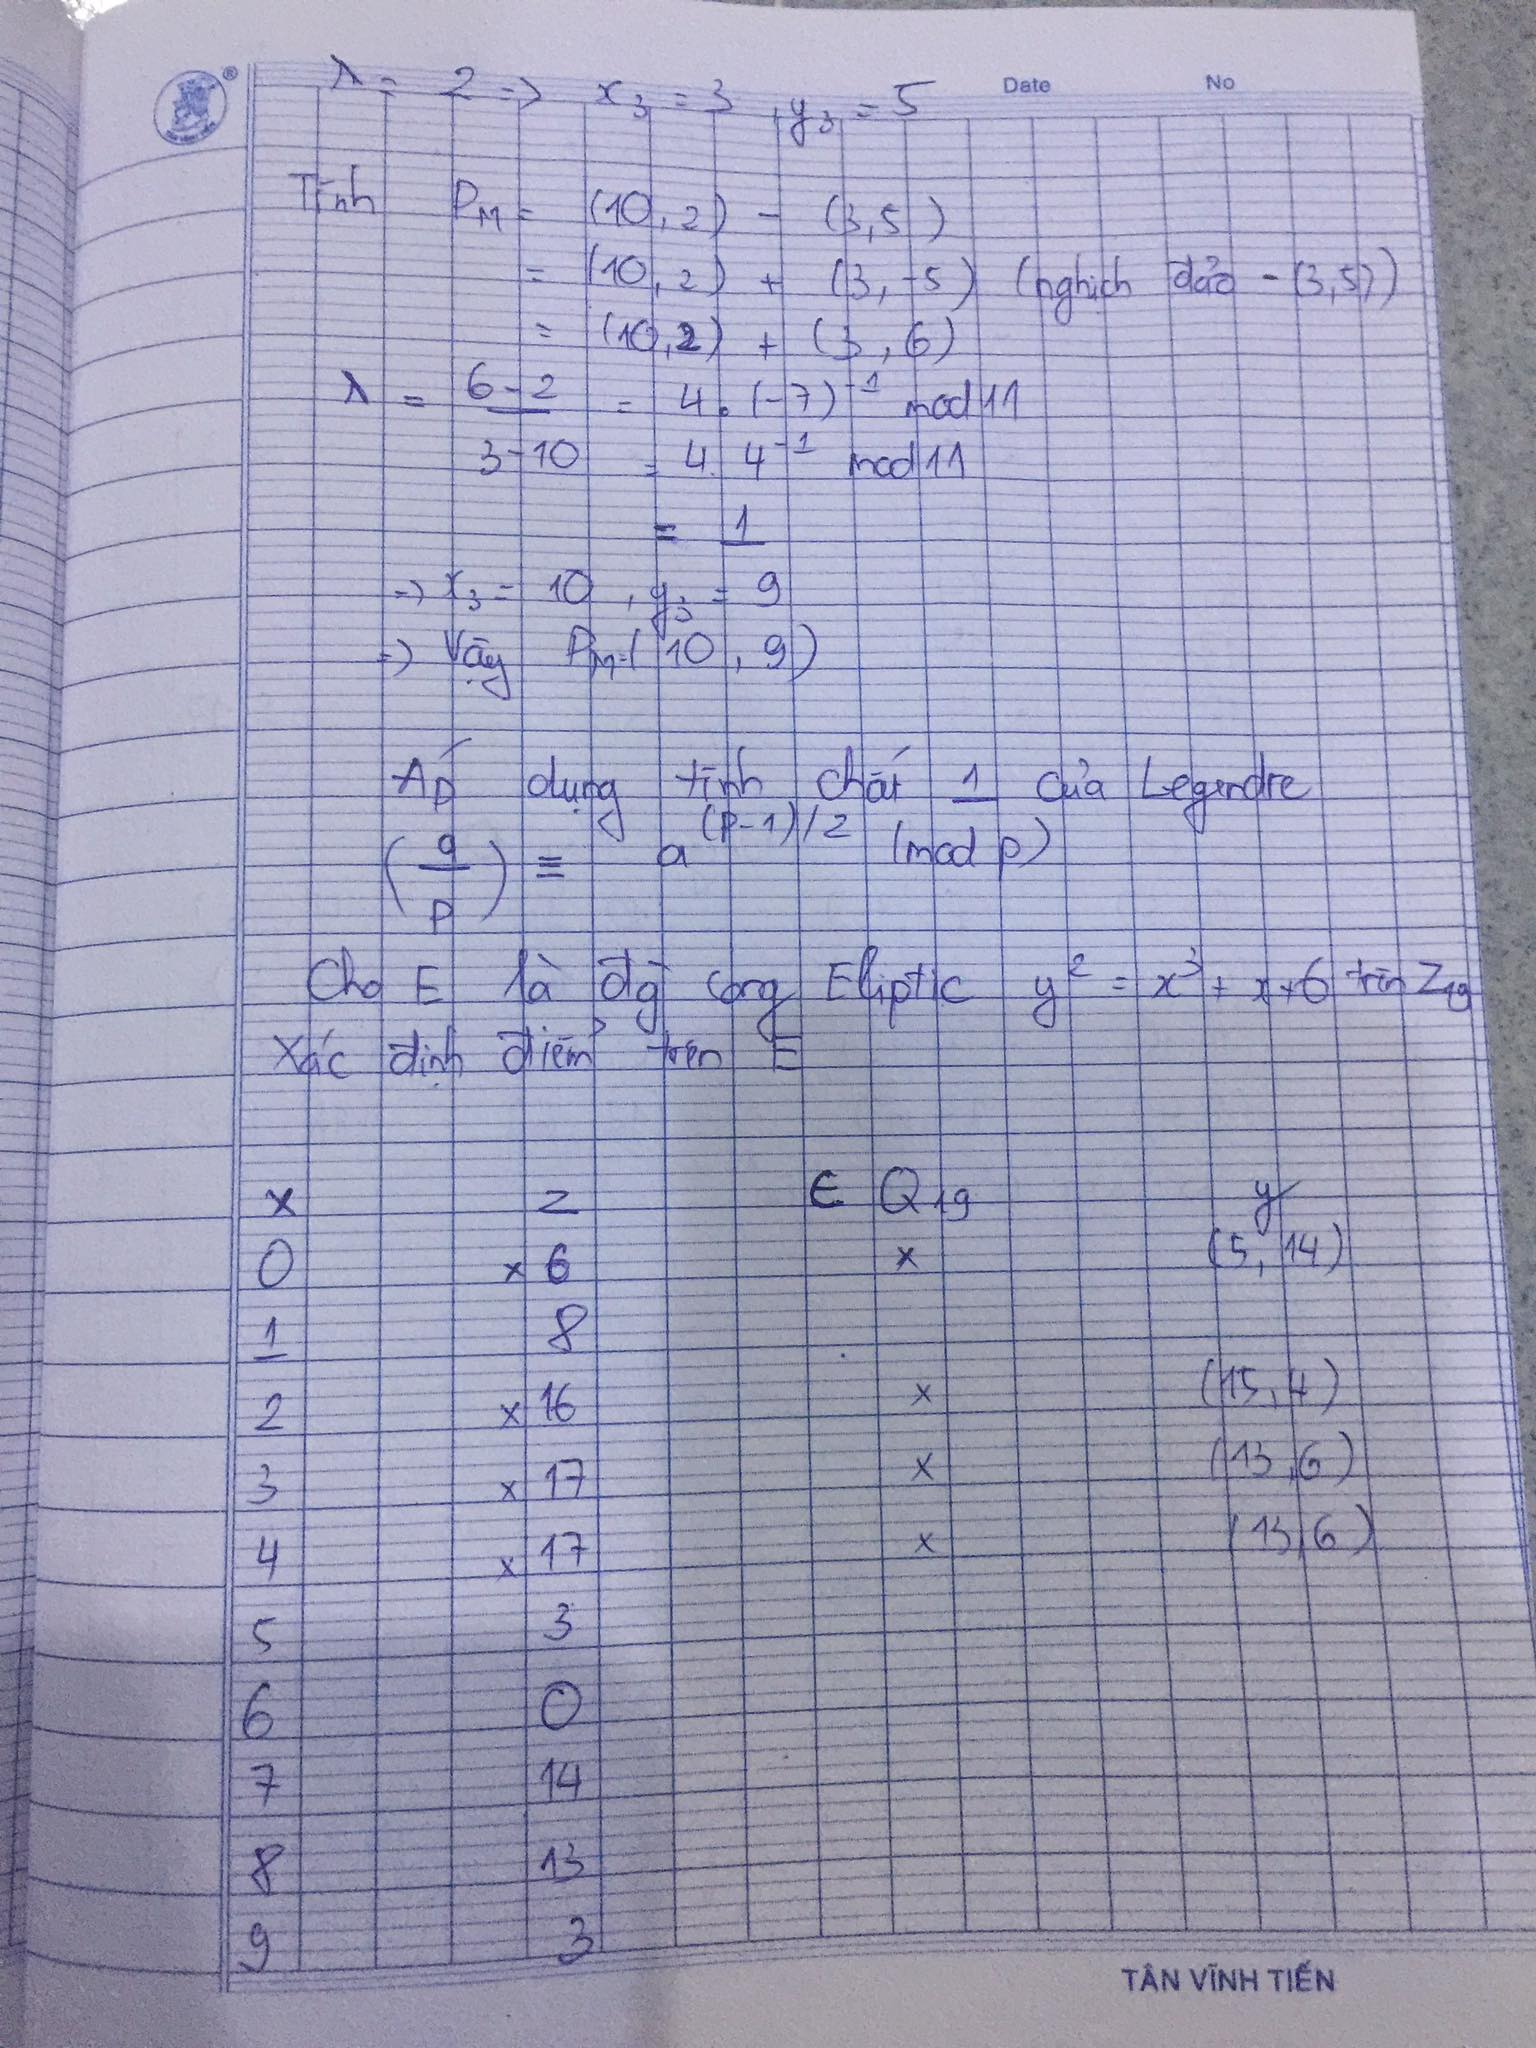 Date No
λ = 2 => x₃ = 3, y₃ = 5
Tính P_M = (10, 2) - (3, 5)
= (10, 2) + (3, -5) (nghịch đảo - (3, 5))
= (10, 2) + (3, 6)
λ = (6 - 2)/(3 - 10) = 4 . (-7)⁻¹ mod 11
= 4 . 4⁻¹ mod 11
= 1
=> x₃ = 10, y₃ = 9
=> Vậy P_M = (10, 9)
Áp dụng tính chất 1 của Legendre
(a/p) ≡ a^(p-1)/2 (mod p)
Cho E là đg cong Eliptic y² = x³ + x + 6 trên Z₁₉
Xác định điểm trên E
x z ∈ Q₁₉ y
0 x 6 x (5, 14)
1 8
2 x 16 x (15, 4)
3 x 17 x (13, 6)
4 x 17 x (13, 6)
5 3
6 0
7 14
8 13
9 3
TÂN VĨNH TIẾN